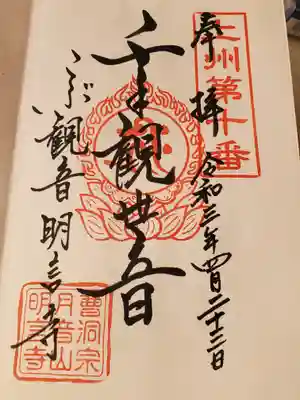 上州第十番
奉拝 令和三年四月二十三日
千手觀世音
こぶ觀音 明言寺
曹洞宗
音山
明言寺